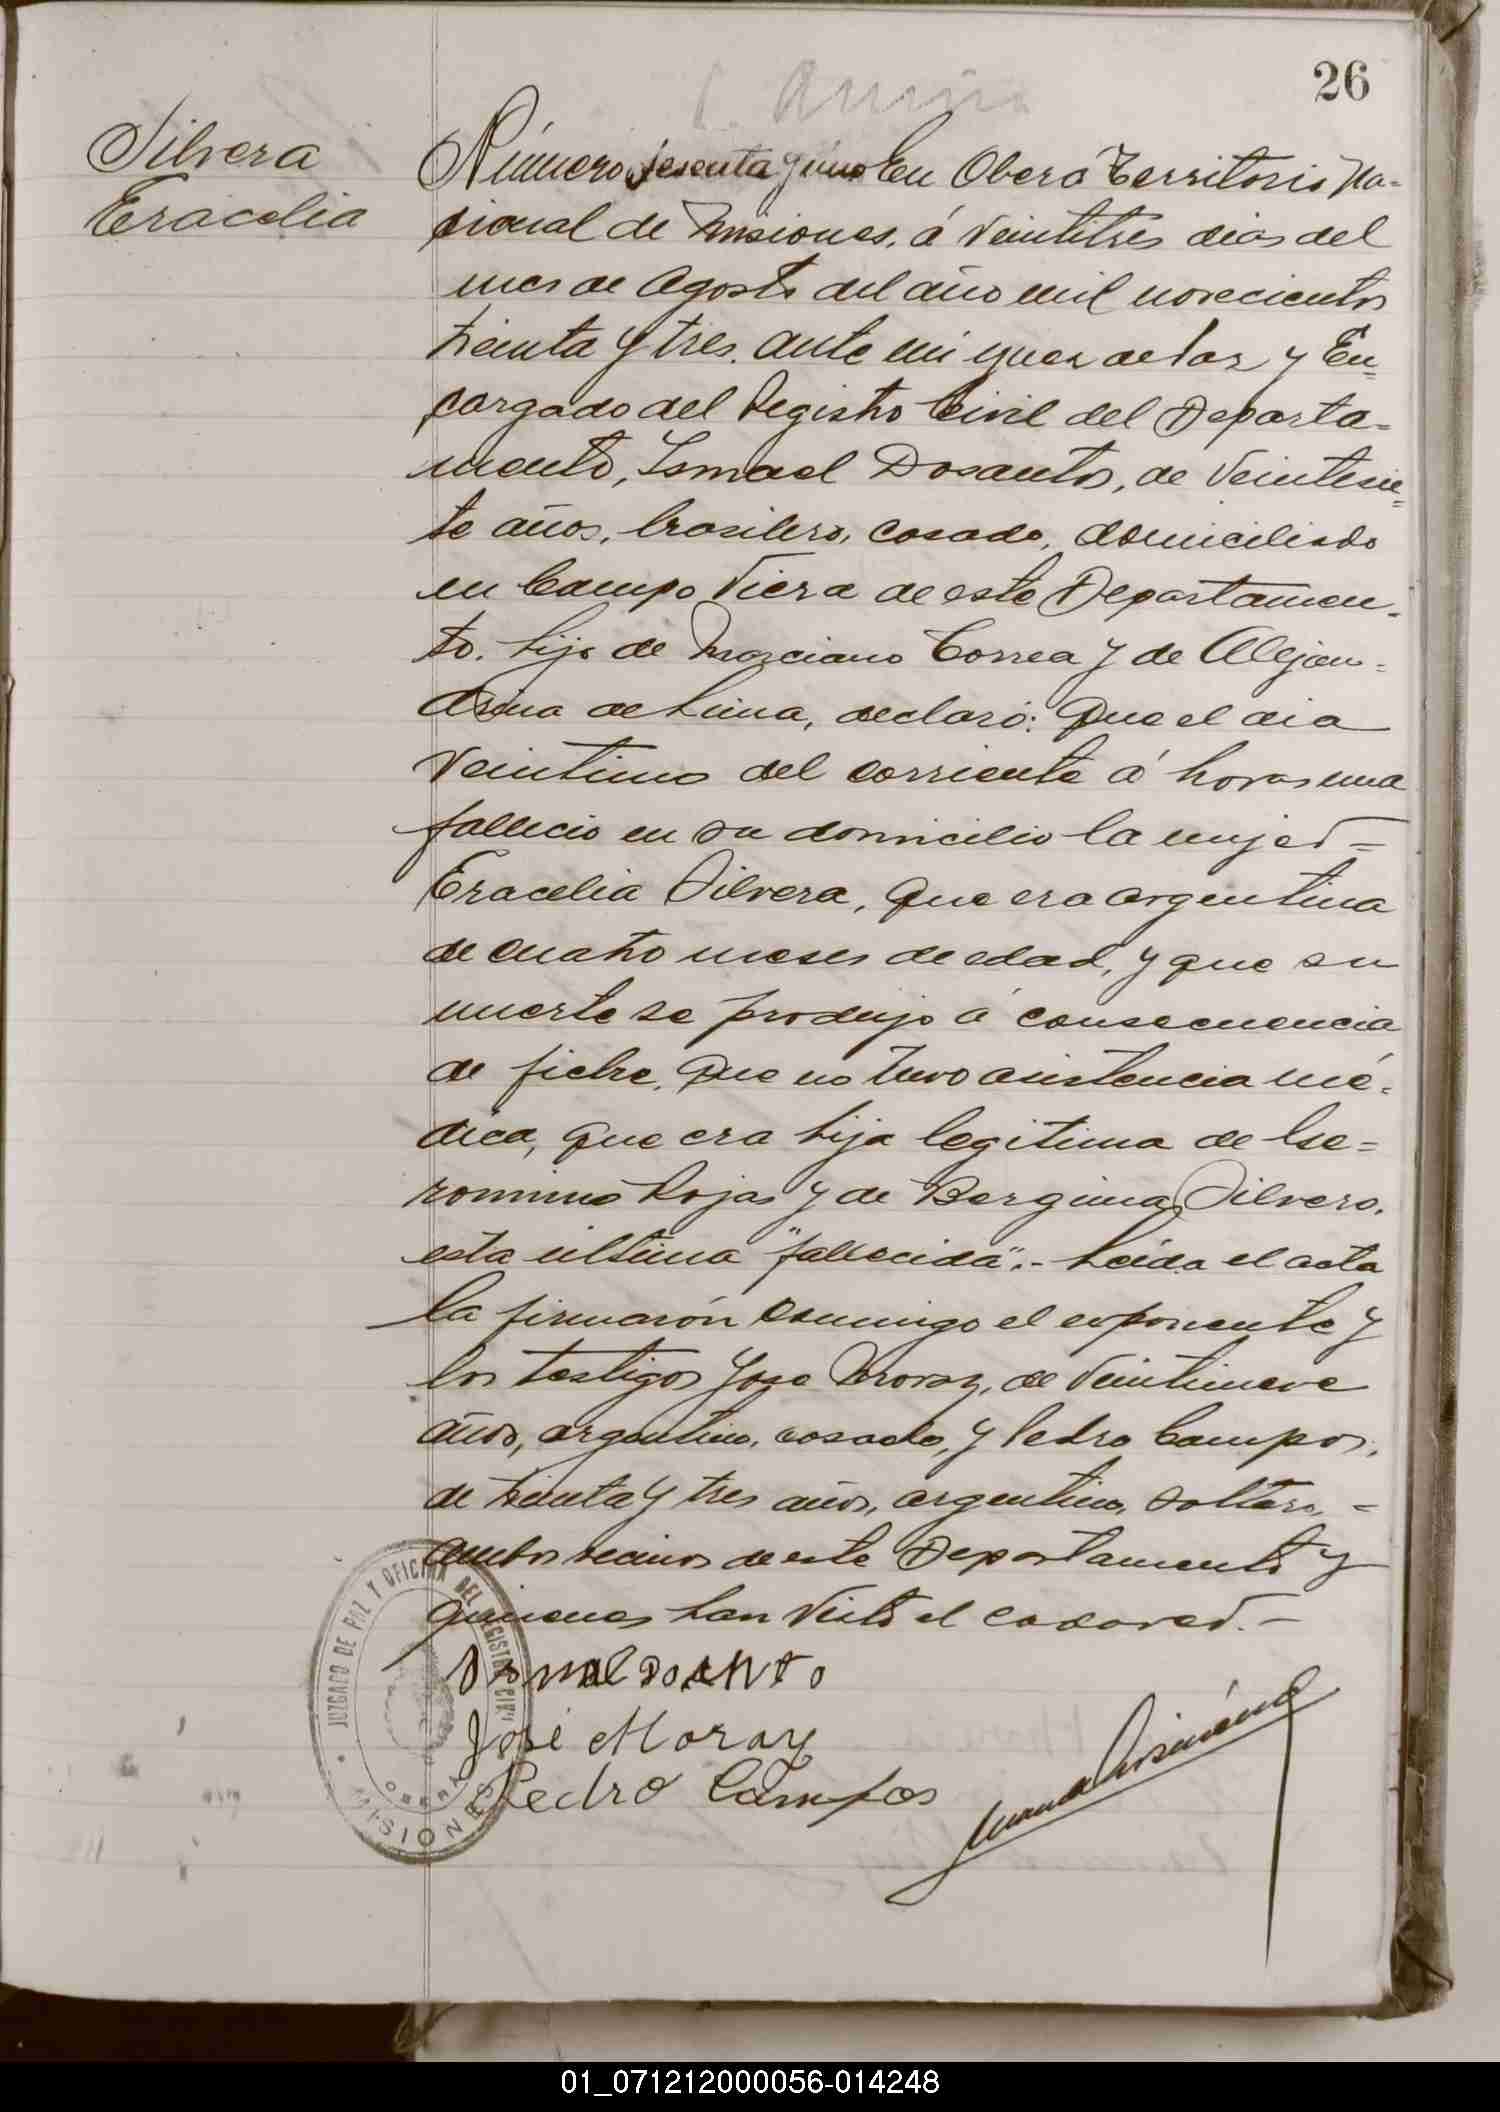 26
Silvera
Eracelia
Número sesenta y uno En Oberá Territorio Na-
cional de Misiones, á veintitres dias del
mes de Agosto del año mil novecientos
treinta y tres. ante mi Juez de Paz y En-
cargado del Registro Civil del Departa-
mento, Ismael Dosantos, de veintesie-
te años, brasilero, casado, domiciliado
en Campo Viera de este Departamen-
to. hijo de Marciano Correa y de Alejan-
drina de Lima, declaró: Que el dia
veintiuno del corriente á horas una
fallecio en su domicilio la mujer =
Eracelia Silvera, que era argentina
de cuatro meses de edad, y que su
muerte se produjo á consecuencia
de fiebre, Que no tuvo asistencia mé-
dica, que era hija legitima de Ge-
ronimo Rojas y de Bergima Silvera,
esta ultima "fallecida".- Leida el acta
la firmarón conmigo el exponente y
los testigos Jose Moray, de veintinueve
años, argentino, casado, y Pedro Campos,
de treinta y tres años, argentino, soltero, =
ambos vecinos de este Departamento y
quienes han visto el cadaver. -
Ismael dosanto
José Moray
Pedro Campos
JUZGADO DE PAZ Y OFICINA DEL REGISTRO CIVIL
OBERA
MISIONES
01_071212000056-014248